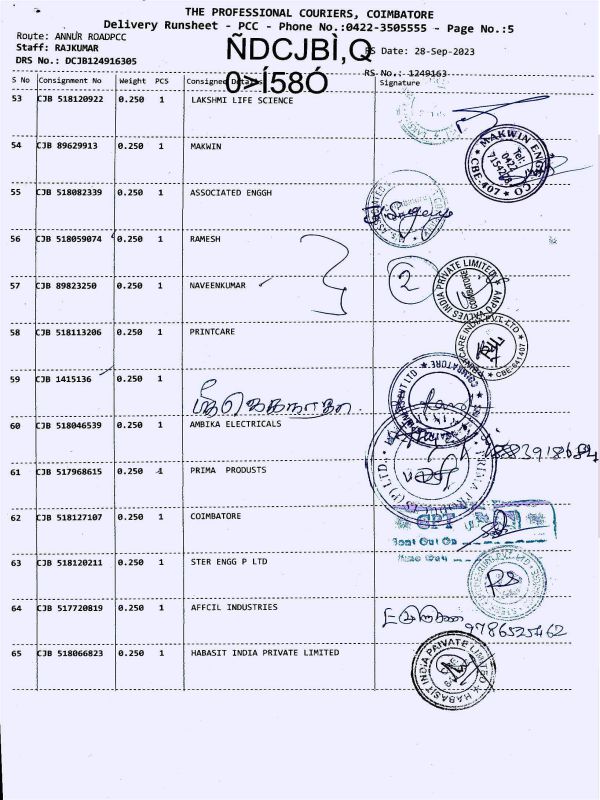 THE PROFESSIONAL COURIERS, COIMBATORE
Delivery Runsheet - PCC - Phone No.:0422-3505555 - Page No.:5
Route: ANNUR ROADPCC
Staff: RAJKUMAR
RS Date: 28-Sep-2023
DRS No.: DCJB124916305
RS No.: 1249163
ÑDCJBÌ,Q
0>Í58Ó
S No Consignment No Weight PCS Consigned Details Signature
53 CJB 518120922 0.250 1 LAKSHMI LIFE SCIENCE
54 CJB 89629913 0.250 1 MAKWIN
MAKWIN ENGG CO CBE-407
Tel: 0422
55 CJB 518082339 0.250 1 ASSOCIATED ENGGH
56 CJB 518059074 0.250 1 RAMESH
57 CJB 89823250 0.250 1 NAVEENKUMAR
2
AMPO VALVES INDIA PRIVATE LIMITED COIMBATORE
58 CJB 518113206 0.250 1 PRINTCARE
CBE-641407
59 CJB 1415136 0.250 1
60 CJB 518046539 0.250 1 AMBIKA ELECTRICALS
61 CJB 517968615 0.250 1 PRIMA PRODUSTS
62 CJB 518127107 0.250 1 COIMBATORE
63 CJB 518120211 0.250 1 STER ENGG P LTD
64 CJB 517720819 0.250 1 AFFCIL INDUSTRIES
9786525462
65 CJB 518066823 0.250 1 HABASIT INDIA PRIVATE LIMITED
HABASIT INDIA PRIVATE LIMITED